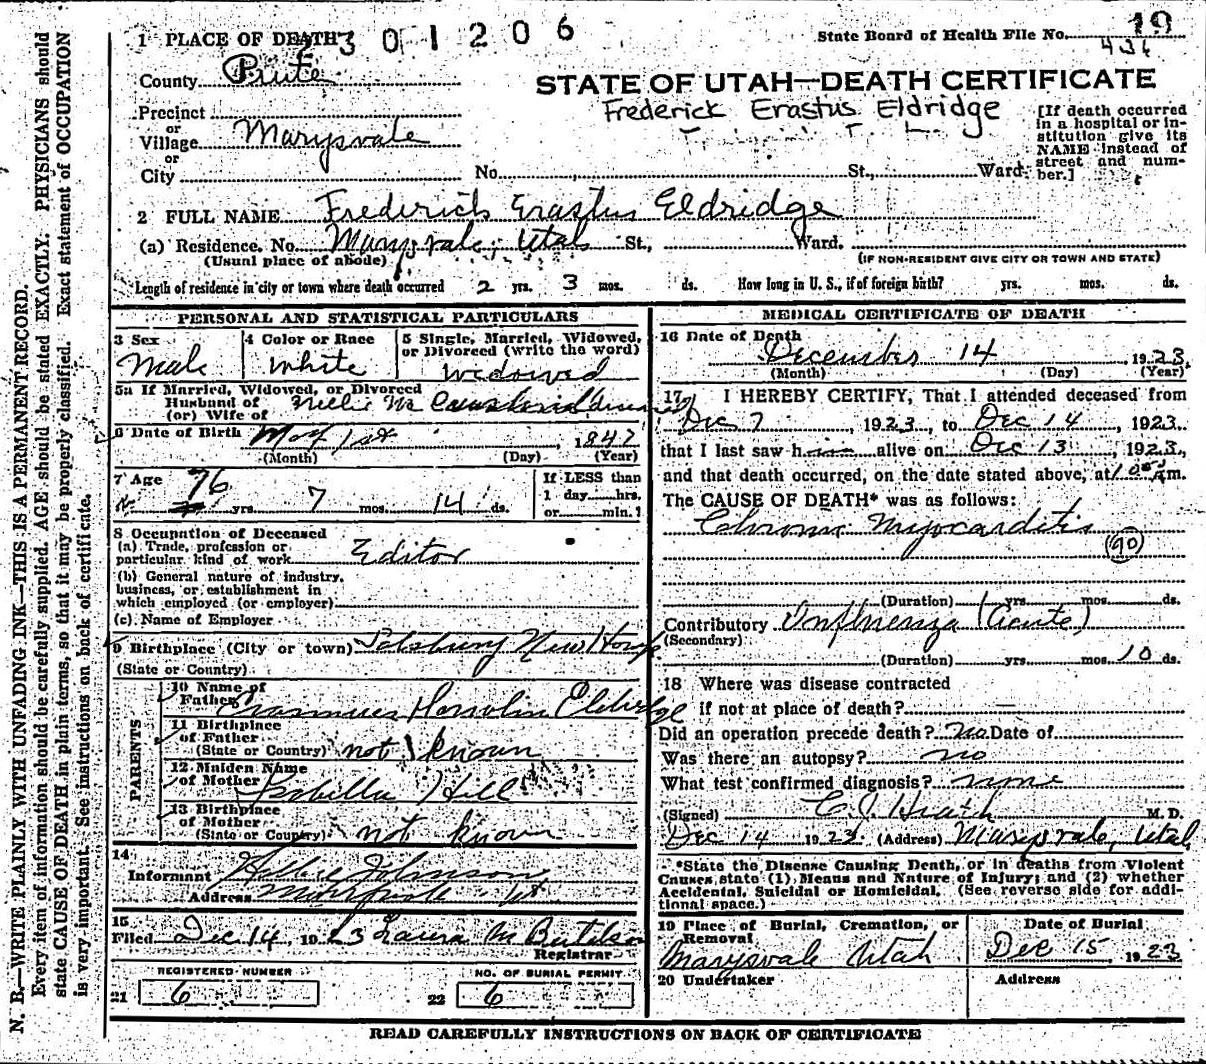 N. B.—WRITE PLAINLY WITH UNFADING INK—THIS IS A PERMANENT RECORD.
Every item of information should be carefully supplied. AGE should be stated EXACTLY. PHYSICIANS should
state CAUSE OF DEATH in plain terms, so that it may be properly classified. Exact statement of OCCUPATION
is very important. See instructions on back of certificate.
1 PLACE OF DEATH
30 1206
State Board of Health File No. 19
436
County Piute
STATE OF UTAH—DEATH CERTIFICATE
Frederick Erastus Eldridge
Precinct
or
Village Marysvale
or
City No. St., Ward.
[If death occurred
in a hospital or in-
stitution give its
NAME instead of
street and num-
ber.]
2 FULL NAME Frederick Erastus Eldridge
(a) Residence. No. Marysvale, Utah St., Ward.
(Usual place of abode) (IF NON-RESIDENT GIVE CITY OR TOWN AND STATE)
Length of residence in city or town where death occurred 2 yrs. 3 mos. ds. How long in U. S., if of foreign birth? yrs. mos. ds.
PERSONAL AND STATISTICAL PARTICULARS
3 Sex
Male
4 Color or Race
White
5 Single, Married, Widowed,
or Divorced (write the word)
Widowed
5a If Married, Widowed, or Divorced
Husband of
(or) Wife of Nellie M
6 Date of Birth May 1st, 1847
(Month) (Day) (Year)
7 Age 76 yrs. 7 mos. 14 ds.
If LESS than
1 day hrs.
or min.
8 Occupation of Deceased
(a) Trade, profession or
particular kind of work Editor
(b) General nature of industry,
business, or establishment in
which employed (or employer)
(c) Name of Employer
9 Birthplace (City or town)
(State or Country)
PARENTS
10 Name of
Father Eldridge
11 Birthplace
of Father
(State or Country) not known
12 Maiden Name
of Mother Hill
13 Birthplace
of Mother
(State or Country) not known
14
Informant Johnson
Address Marysvale Ut
15
Filed Dec 14, 1923 Laura M
Registrar
REGISTERED NUMBER
21 6
NO. OF BURIAL PERMIT
22 6
MEDICAL CERTIFICATE OF DEATH
16 Date of Death
December 14 1923
(Month) (Day) (Year)
17 I HEREBY CERTIFY, That I attended deceased from
Dec 7, 1923, to Dec 14, 1923
that I last saw him alive on Dec 13, 1923,
and that death occurred, on the date stated above, at m.
The CAUSE OF DEATH* was as follows:
Chronic Myocarditis
90
(Duration) 1 yrs. mos. ds.
Contributory Influenza (acute)
(Secondary)
(Duration) yrs. mos. 10 ds.
18 Where was disease contracted
if not at place of death? —
Did an operation precede death? No Date of
Was there an autopsy? no
What test confirmed diagnosis? none
(Signed) M. D.
Dec 14 1923 (Address) Marysvale, Utah
*State the Disease Causing Death, or in deaths from Violent
Causes, state (1) Means and Nature of Injury; and (2) whether
Accidental, Suicidal or Homicidal. (See reverse side for addi-
tional space.)
19 Place of Burial, Cremation, or
Removal
Marysvale Utah
Date of Burial
Dec 15 1923
20 Undertaker Address
READ CAREFULLY INSTRUCTIONS ON BACK OF CERTIFICATE